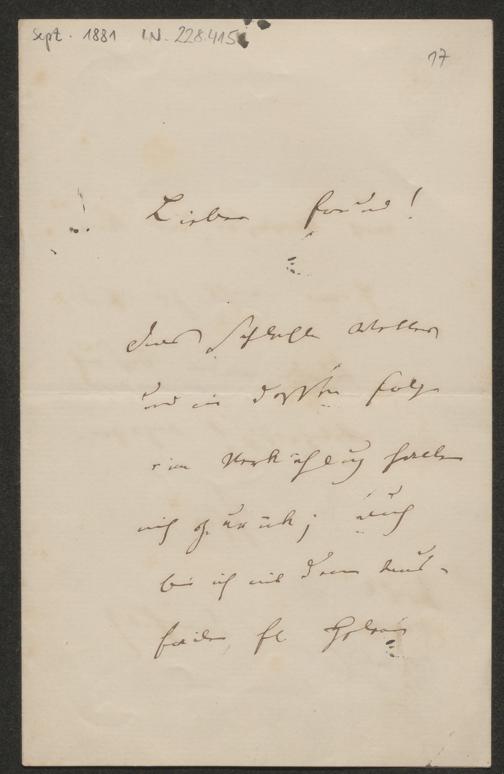 Sept. 1881 I.N. 228.415
17
Lieber Freund!
Das schlechte Wetter
und in dessen Folge
eine Verkühlung halten
mich zurück; auch
bin ich mit dem